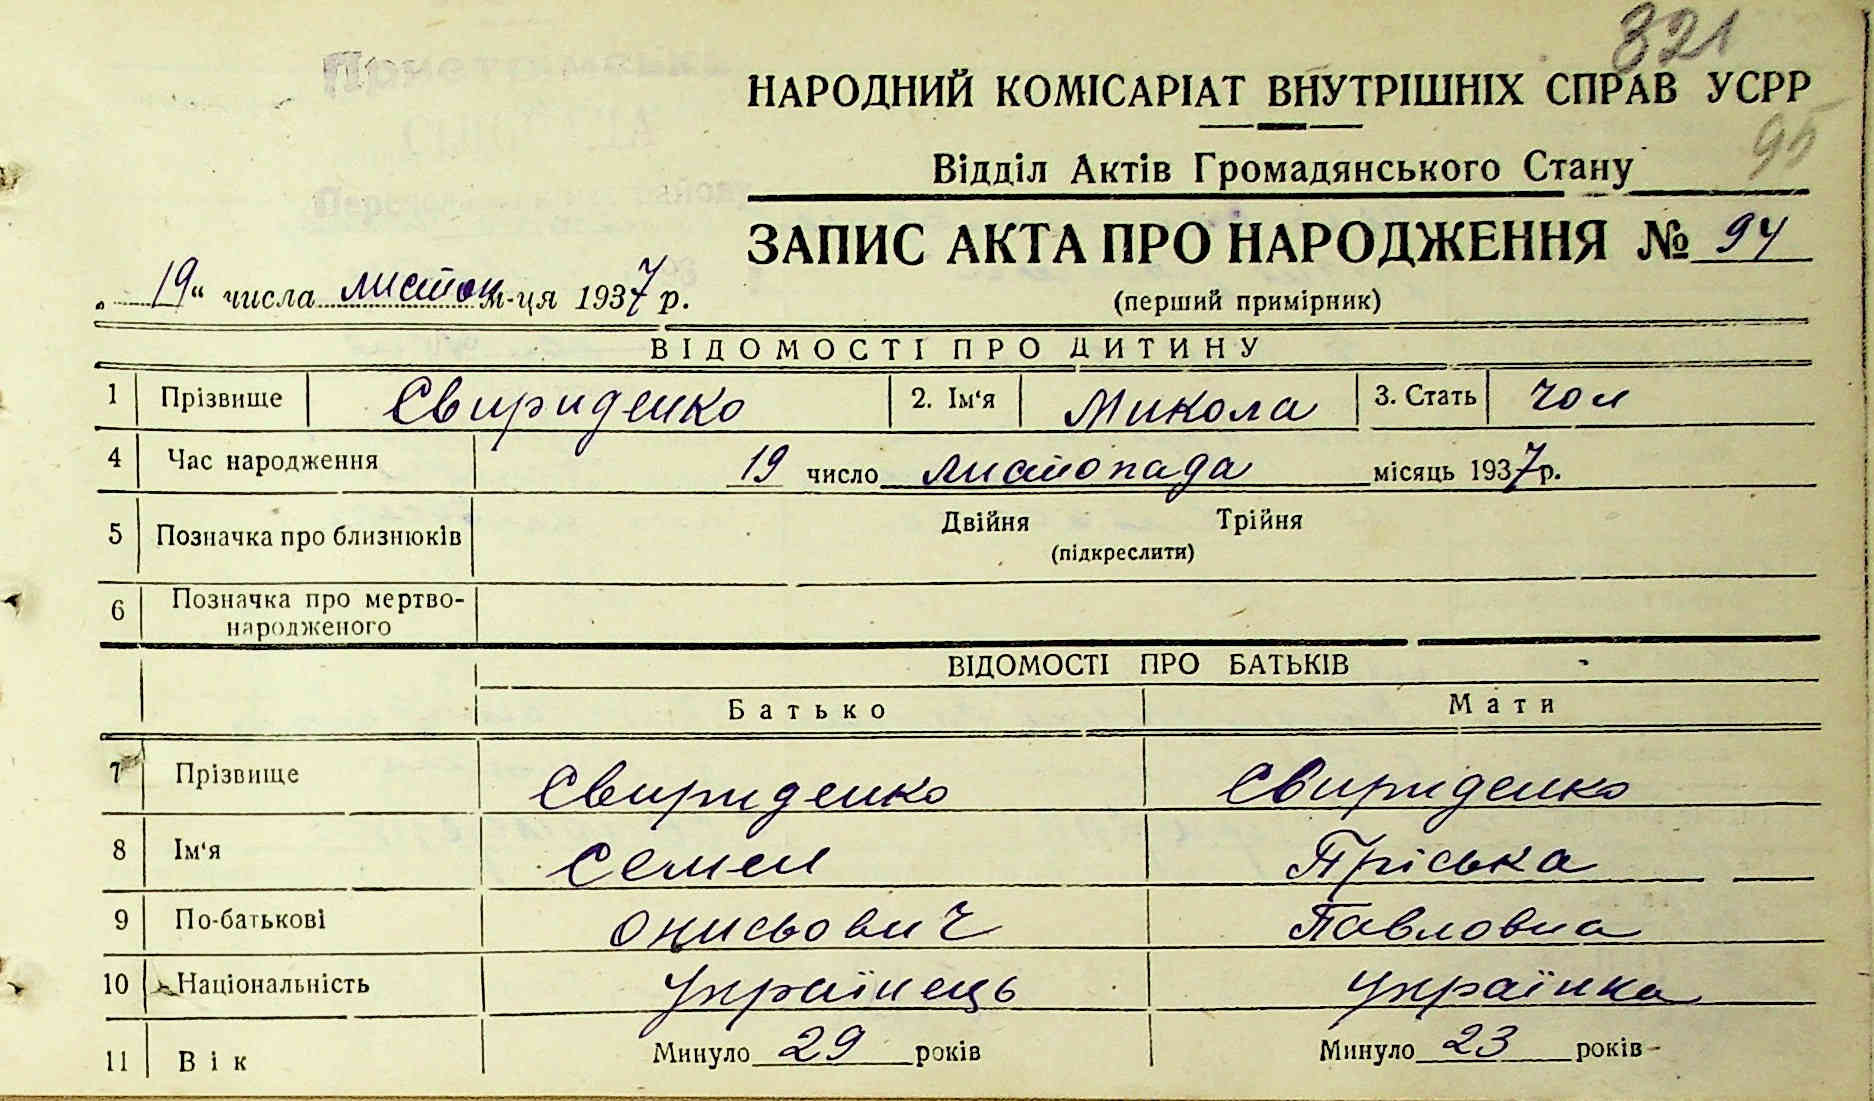 321
НАРОДНИЙ КОМІСАРІАТ ВНУТРІШНІХ СПРАВ УСРР
95
Відділ Актів Громадянського Стану
ЗАПИС АКТА ПРО НАРОДЖЕННЯ № 94
„19“ числа листоп м-ця 1937 р.
(перший примірник)
ВІДОМОСТІ ПРО ДИТИНУ
1 Прізвище Свириденко 2. Ім‘я Микола 3. Стать чол
4 Час народження 19 число листопада місяць 1937 р.
5 Позначка про близнюків Двійня Трійня
(підкреслити)
6 Позначка про мертво-
народженого
ВІДОМОСТІ ПРО БАТЬКІВ
Батько Мати
7 Прізвище Свириденко Свириденко
8 Ім‘я Семен Пріська
9 По-батькові Онисьович Павловна
10 Національність Українець Українка
11 Вік Минуло 29 років Минуло 23 років